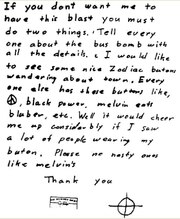 If you dont want me to
have this blast you must
do two things. Tell every
one about the bus bomb with
all the details. I would like
to see some nice Zodiac butons
wandering about town. Every
one else has these butons like,
☮, black power, melvin eats
bluber, etc. Well it would cheer
me up considerbly if I saw
a lot of people wearing my
buton. Please no nasty ones
like melvin's
Thank you